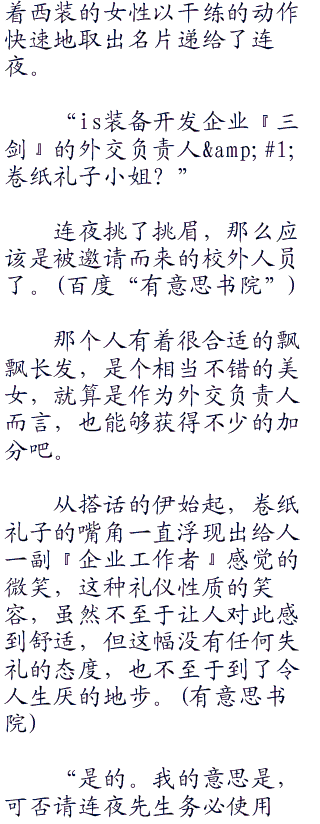 着西装的女性以干练的动作
快速地取出名片递给了连
夜。
“is装备开发企业『三
剑』的外交负责人&amp;#1;
卷纸礼子小姐？”
连夜挑了挑眉，那么应
该是被邀请而来的校外人员
了。(百度“有意思书院”)
那个人有着很合适的飘
飘长发，是个相当不错的美
女，就算是作为外交负责人
而言，也能够获得不少的加
分吧。
从搭话的伊始起，卷纸
礼子的嘴角一直浮现出给人
一副『企业工作者』感觉的
微笑，这种礼仪性质的笑
容，虽然不至于让人对此感
到舒适，但这幅没有任何失
礼的态度，也不至于到了令
人生厌的地步。(有意思书
院)
“是的。我的意思是，
可否请连夜先生务必使用